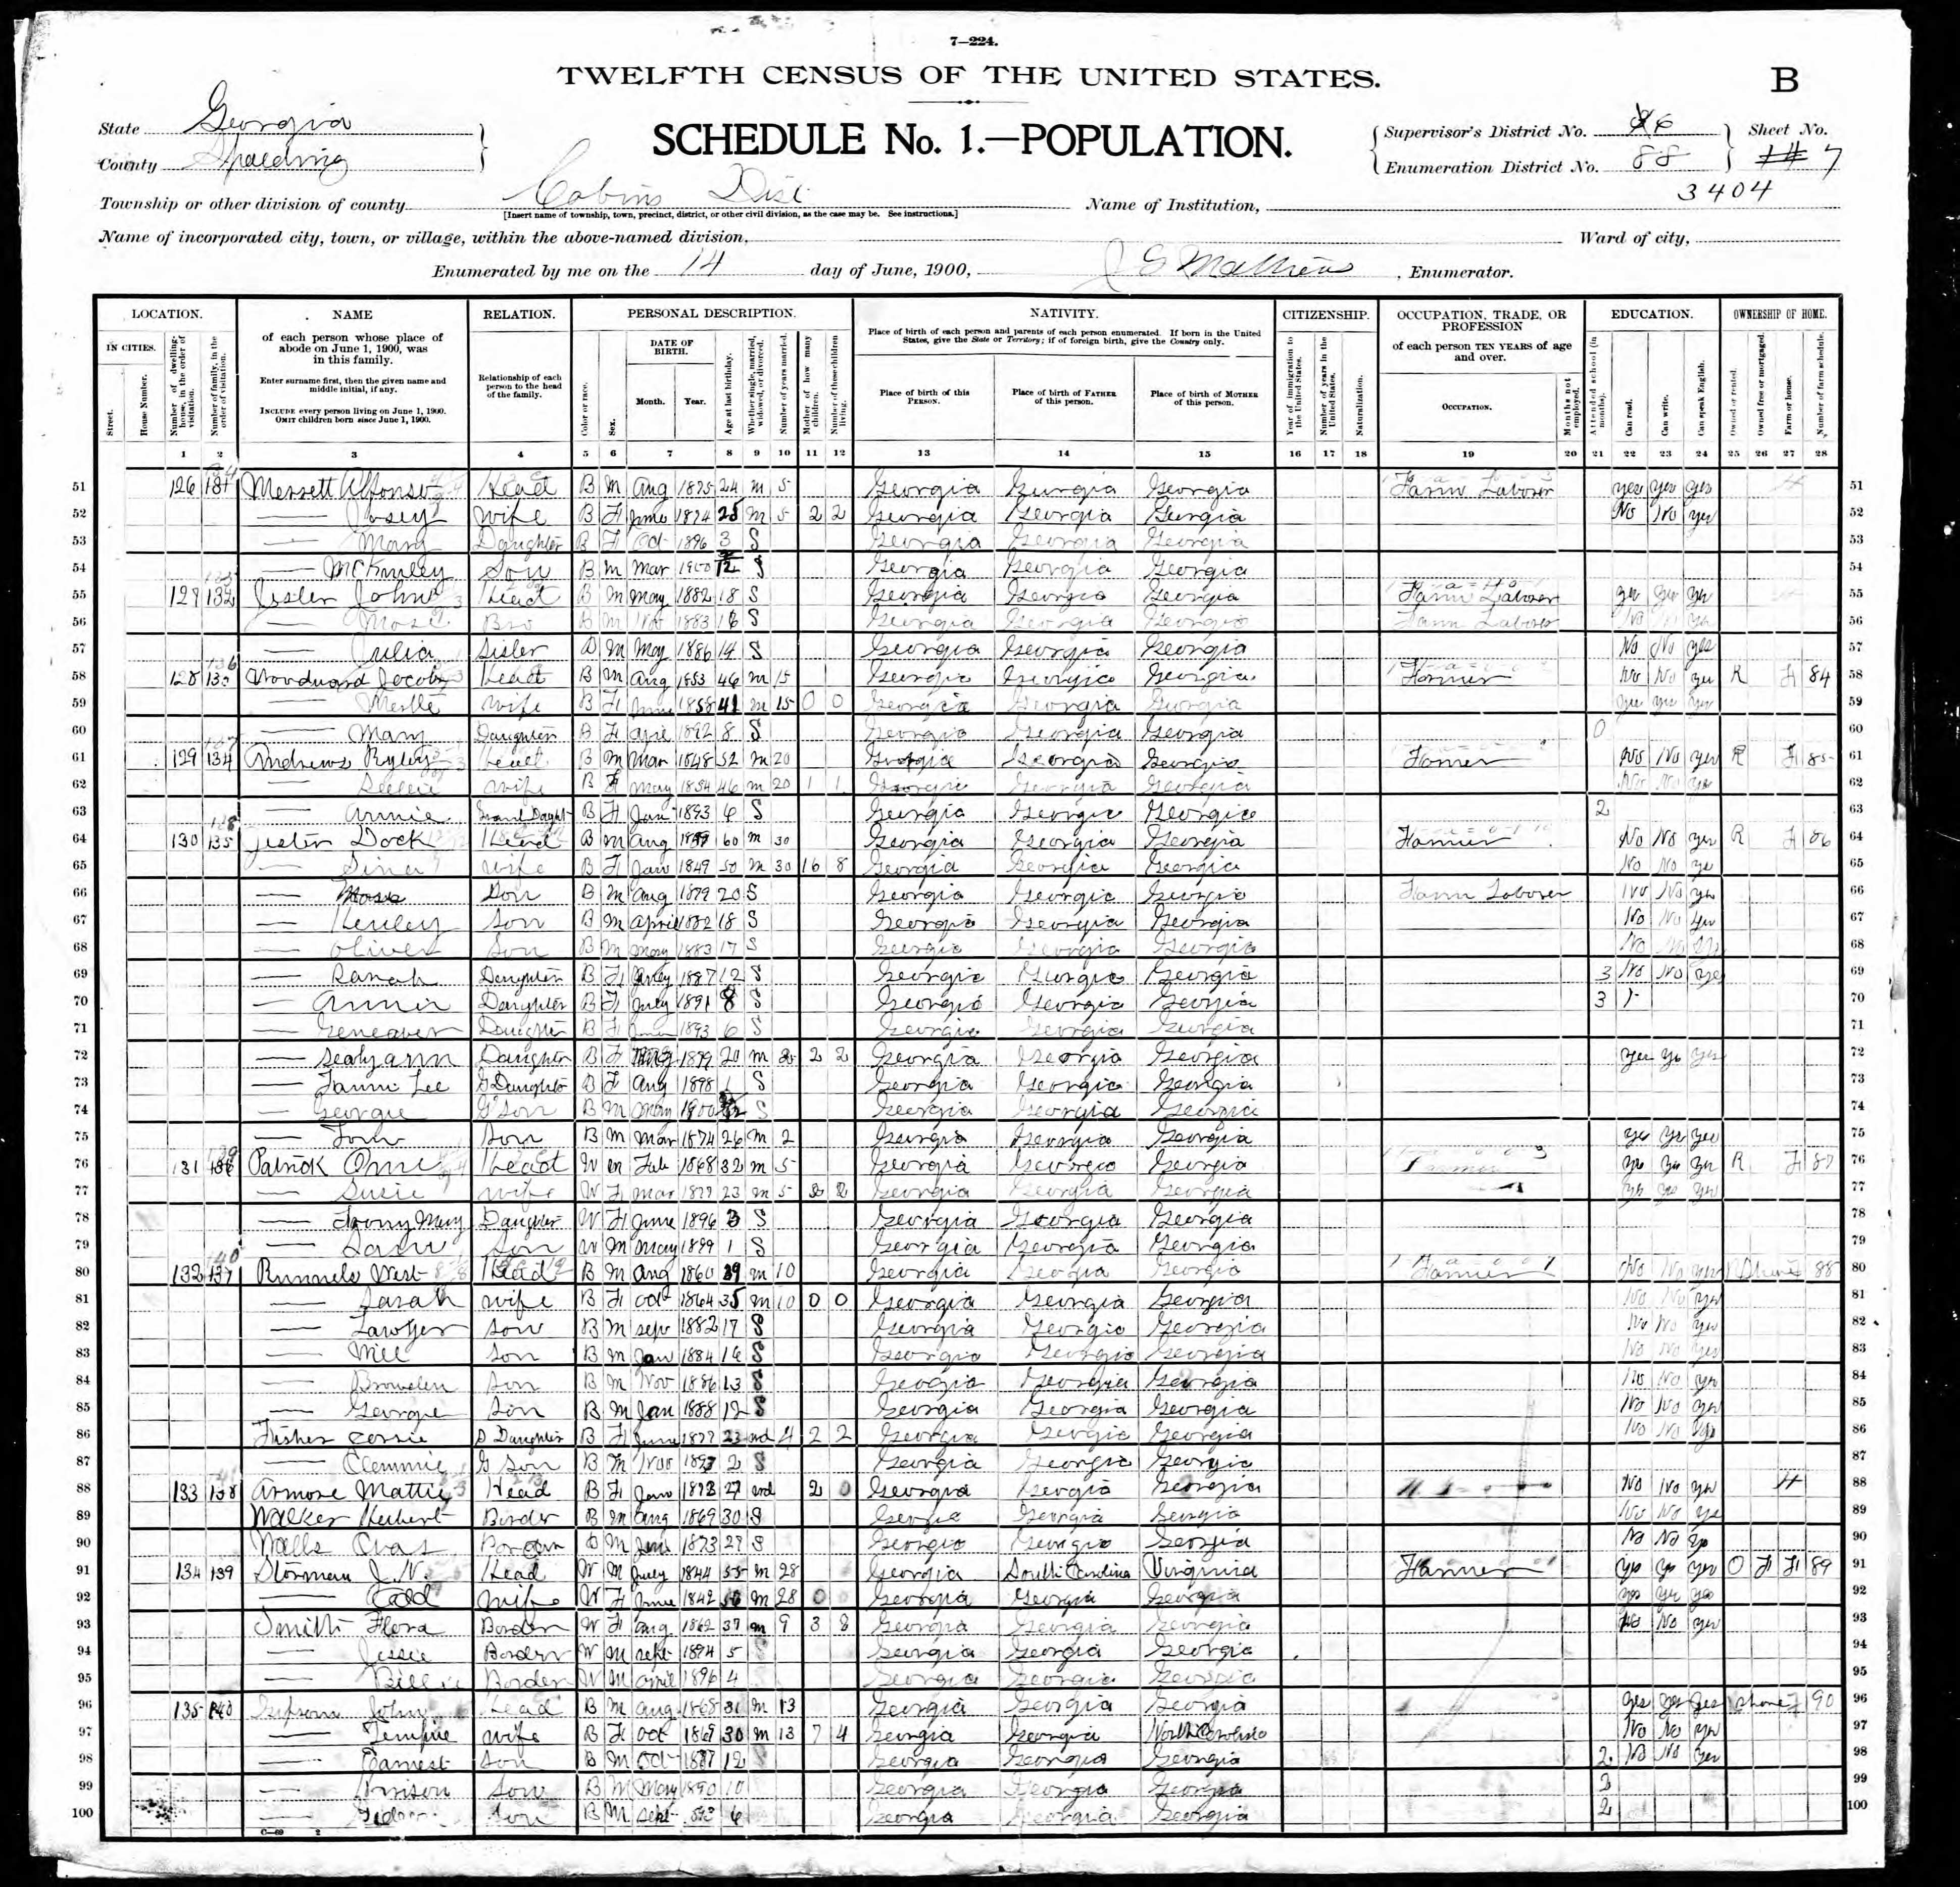 7—224.
TWELFTH CENSUS OF THE UNITED STATES.
B
State Georgia
County Spalding
SCHEDULE No. 1.—POPULATION.
Supervisor's District No. 6
Enumeration District No. 88
Sheet No. 7
3404
Township or other division of county Cabins Dist
[Insert name of township, town, precinct, district, or other civil division, as the case may be. See instructions.]
Name of Institution,
Name of incorporated city, town, or village, within the above-named division,
Ward of city,
Enumerated by me on the 14 day of June, 1900, J E Mathews, Enumerator.
LOCATION. NAME RELATION. PERSONAL DESCRIPTION. NATIVITY. CITIZENSHIP. OCCUPATION, TRADE, OR PROFESSION EDUCATION. OWNERSHIP OF HOME.
IN CITIES. Street. House Number. Number of dwelling-house, in the order of visitation. Number of family, in the order of visitation.
of each person whose place of abode on June 1, 1900, was in this family.
Enter surname first, then the given name and middle initial, if any.
INCLUDE every person living on June 1, 1900. OMIT children born since June 1, 1900.
Relationship of each person to the head of the family.
Color or race. Sex. DATE OF BIRTH. Month. Year. Age at last birthday. Whether single, married, widowed, or divorced. Number of years married. Mother of how many children. Number of these children living.
Place of birth of each person and parents of each person enumerated. If born in the United States, give the State or Territory; if of foreign birth, give the Country only.
Place of birth of this PERSON. Place of birth of FATHER of this person. Place of birth of MOTHER of this person.
Year of immigration to the United States. Number of years in the United States. Naturalization.
of each person TEN YEARS of age and over.
OCCUPATION. Months not employed.
Attended school (in months). Can read. Can write. Can speak English.
Owned or rented. Owned free or mortgaged. Farm or house. Number of farm schedule.
1 2 3 4 5 6 7 8 9 10 11 12 13 14 15 16 17 18 19 20 21 22 23 24 25 26 27 28
51 126 Messett Alfonso Head B M Aug 1875 24 M 5 Georgia Georgia Georgia Farm Laborer yes yes yes 51
52 — Josey wife B F June 1874 25 M 5 2 2 Georgia Georgia Georgia No No yes 52
53 — Mary Daughter B F Oct 1896 3 S Georgia Georgia Georgia 53
54 — McKinley Son B M Mar 1900 S Georgia Georgia Georgia 54
55 127 132 Jester John Head B M May 1882 18 S Georgia Georgia Georgia Farm Laborer yes yes yes 55
56 — Mose Bro B M 1883 16 S Georgia Georgia Georgia Farm Laborer No yes 56
57 — Julia Sister B M May 1886 14 S Georgia Georgia Georgia No No yes 57
58 128 Woodward Jacob Head B M Aug 1853 46 M 15 Georgia Georgia Georgia Farmer No No yes R F 84 58
59 — wife B F June 1858 41 M 15 0 0 Georgia Georgia Georgia yes yes yes 59
60 — Mary Daughter B F Apr 1892 8 S Georgia Georgia Georgia 0 60
61 129 134 Andrews Ryley Head B M Mar 1848 52 M 20 Georgia Georgia Georgia Farmer No No yes R F 85 61
62 — wife B F May 1854 46 M 20 1 1 Georgia Georgia Georgia No No yes 62
63 — Annie Grand Daught B F Jan 1893 6 S Georgia Georgia Georgia 2 63
64 130 135 Jester Dock Head B M Aug 60 M 30 Georgia Georgia Georgia Farmer No No yes R F 86 64
65 — Sina wife B F Jan 1849 50 M 30 16 8 Georgia Georgia Georgia No No yes 65
66 — Mose Son B M Aug 1879 20 S Georgia Georgia Georgia Farm Laborer No No yes 66
67 — Henley Son B M April 1882 18 S Georgia Georgia Georgia No No yes 67
68 — Oliver Son B M May 1883 17 S Georgia Georgia Georgia No 68
69 — Sarah Daughter B F July 1887 12 S Georgia Georgia Georgia 3 No No yes 69
70 — Annie Daughter B F July 1891 8 S Georgia Georgia Georgia 3 70
71 — Geneaver Daughter B F June 1893 6 S Georgia Georgia Georgia 71
72 — Sealyann Daughter B F Aug 1879 20 M 2 2 Georgia Georgia Georgia yes ye yes 72
73 — Fannie Lee G Daughter B F Aug 1898 1 S Georgia Georgia Georgia 73
74 — Georgie G Son B M May 1900 S Georgia Georgia Georgia 74
75 — Tom Son B M Mar 1874 26 M 2 Georgia Georgia Georgia yes yes yes 75
76 131 136 Patrick Head W M Feb 1868 32 M 5 Georgia Georgia Georgia Farmer yes yes yes R F 87 76
77 — Susie wife W F Mar 1877 23 M 5 2 2 Georgia Georgia Georgia yes yes yes 77
78 — Mary Daughter W F June 1896 3 S Georgia Georgia Georgia 78
79 — Son W M May 1899 1 S Georgia Georgia Georgia 79
80 132 137 Runnels West Head B M Aug 1860 39 M 10 Georgia Georgia Georgia Farmer No No yes 88 80
81 — Sarah wife B F Oct 1864 35 M 10 0 0 Georgia Georgia Georgia No No yes 81
82 — Lawyer Son B M Sep 1882 17 S Georgia Georgia Georgia No No yes 82
83 — Son B M Jan 1884 16 S Georgia Georgia Georgia No No yes 83
84 — Browden Son B M Nov 1886 13 S Georgia Georgia Georgia No No yes 84
85 — George Son B M Jan 1888 12 S Georgia Georgia Georgia No No yes 85
86 Fisher Cossie S Daughter B F June 1877 23 wd 4 2 2 Georgia Georgia Georgia No No yes 86
87 — Clemmie G Son B M Nov 1897 2 S Georgia Georgia Georgia 87
88 133 138 Armore Mattie Head B F Jan 1873 27 wd 2 0 Georgia Georgia Georgia No No yes H 88
89 Walker Hubert Border B M Aug 1869 30 S Georgia Georgia Georgia No No yes 89
90 Walls Chas B M June 1873 27 S Georgia Georgia Georgia No No ye 90
91 134 139 Storman J. N. Head W M July 1844 55 M 28 Georgia South Carolina Virginia Farmer yes yes yes O F F 89 91
92 — wife W F June 1842 M 28 0 Georgia Georgia Georgia yes yes yes 92
93 Smith Flora Border W F Aug 1862 37 M 9 3 Georgia Georgia Georgia No No yes 93
94 — Jessie Border W M Sept 1894 5 Georgia Georgia Georgia 94
95 — Billie Border W M April 1896 4 Georgia Georgia Georgia 95
96 135 140 John Head B M Aug 1868 31 M 13 Georgia Georgia Georgia yes yes yes 90 96
97 — Tempie wife B F Oct 1869 30 M 13 7 4 Georgia Georgia North Carolina No No yes 97
98 — Earnest Son B M Oct 1887 12 Georgia Georgia Georgia 2 No No yes 98
99 — Son B M May 1890 10 Georgia Georgia Georgia 99
100 — Son B M Sept 6 Georgia Georgia Georgia 2 100